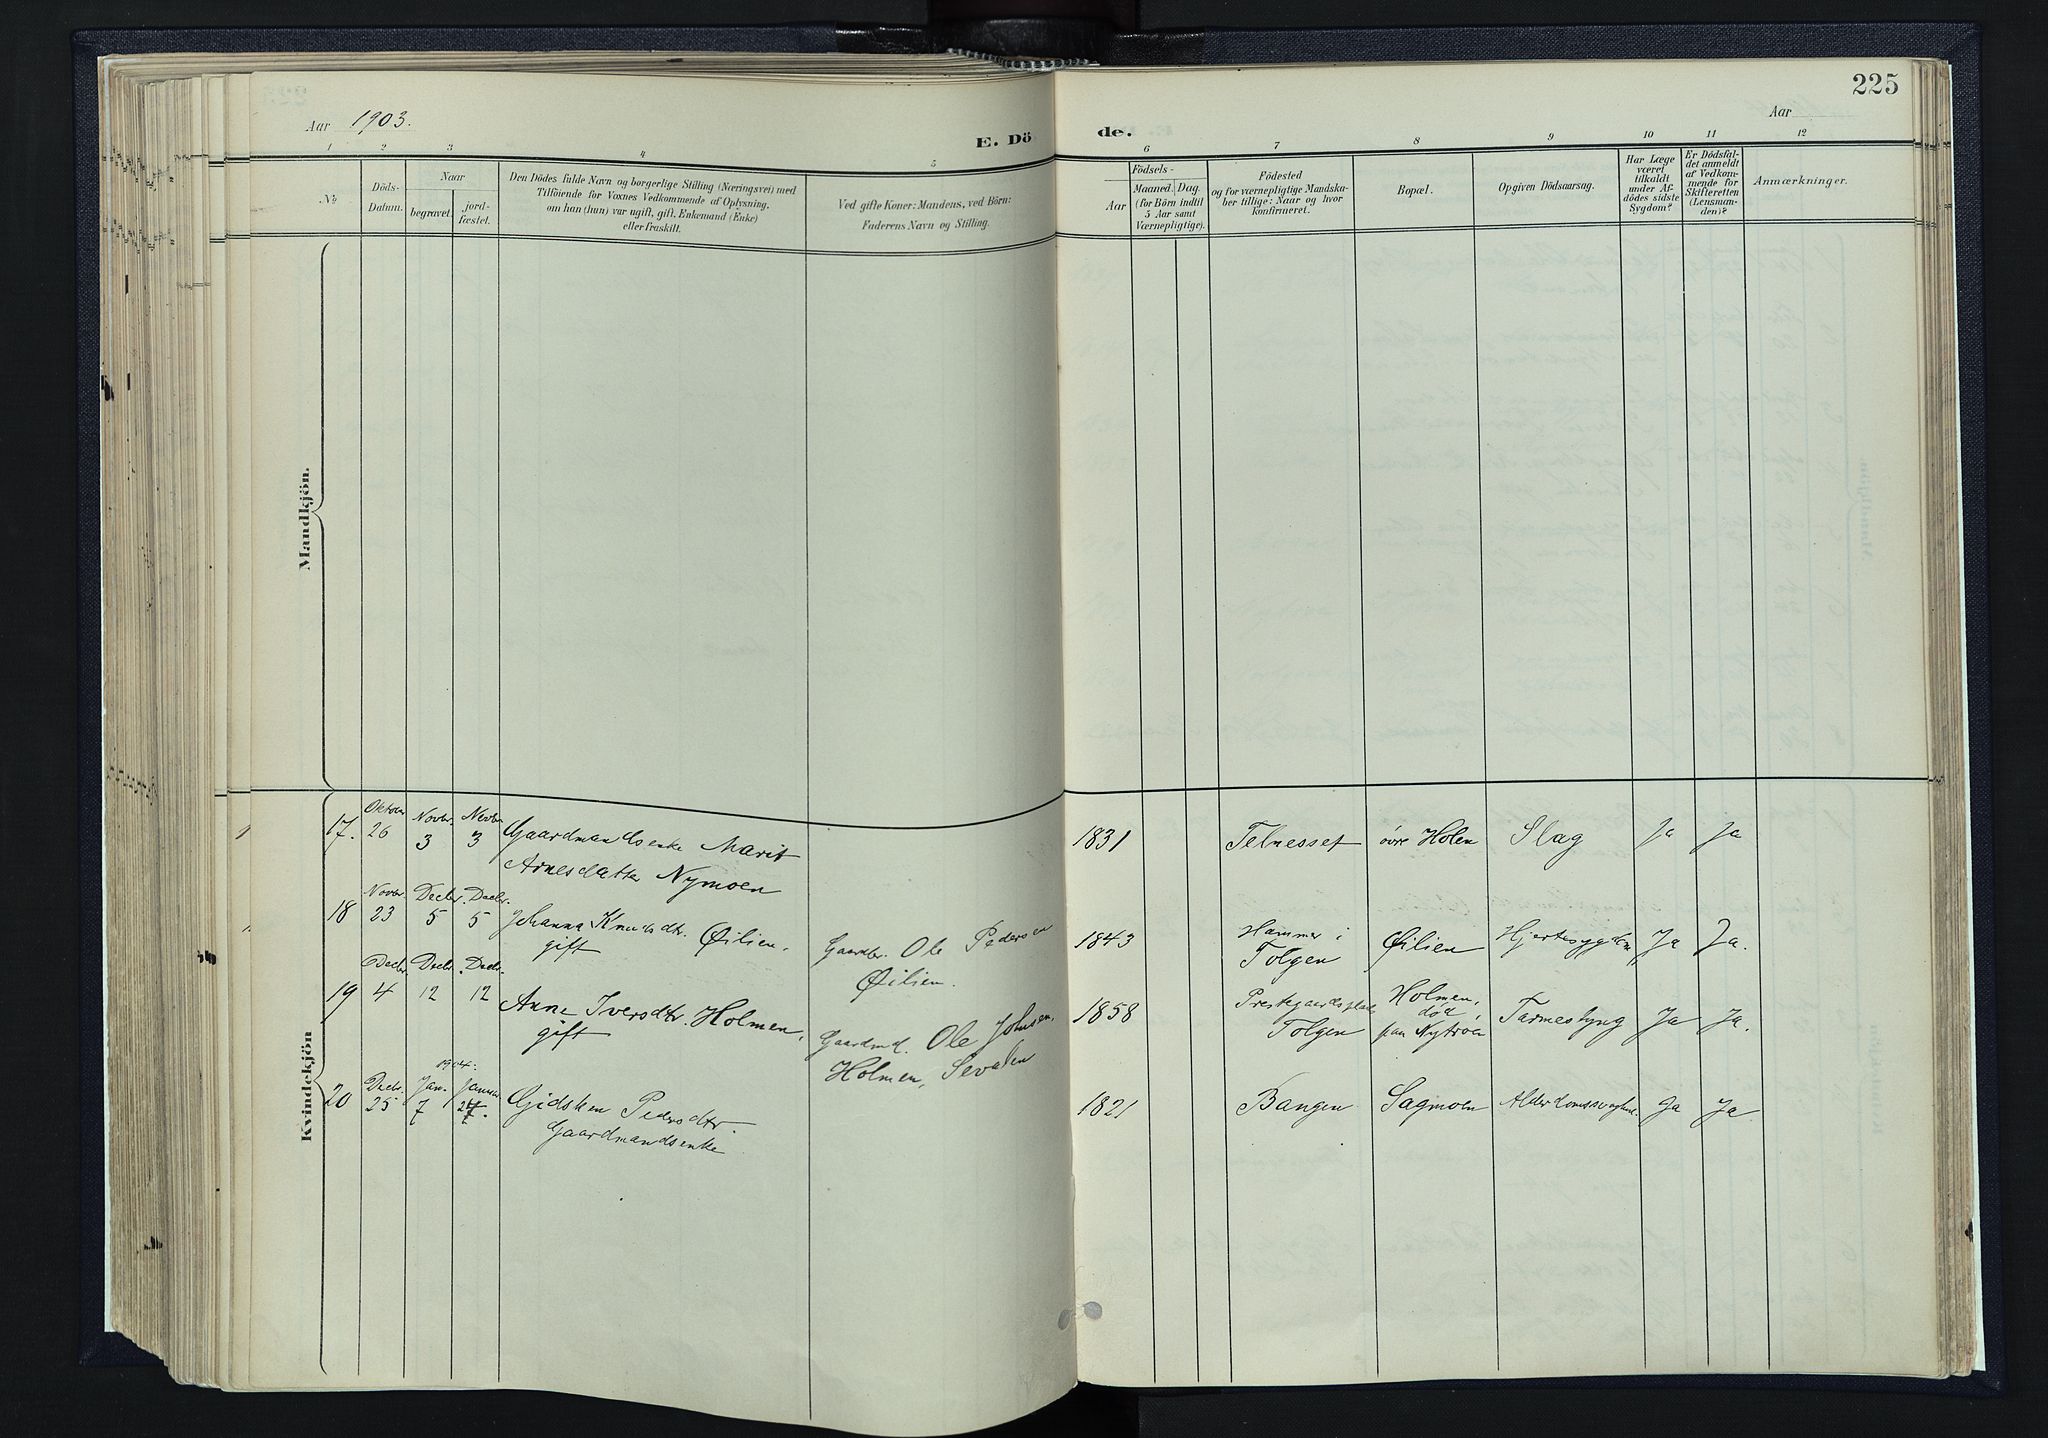 225
Aar 1903.
E. Dö
de.
Aar
1 2 3 4 5 6 7 8 9 10 11 12
№
Döds-
Datum.
Naar
begravet.
jord-
fæstet.
Den Dödes fulde Navn og borgerlige Stilling (Næringsvei) med
Tilföiende for Voxnes Vedkommende af Oplysning,
om han (hun) var ugift, gift, Enkemand (Enke)
eller fraskilt.
Ved gifte Koner: Mandens, ved Börn:
Faderens Navn og Stilling.
Födsels-
Aar
Maaned. Dag.
(for Börn indtil
5 Aar samt
Værnepligtige).
Födested
og for værnepligtige Mandska-
ber tillige: Naar og hvor
konfirmeret.
Bopæl.
Opgiven Dödsaarsag.
Har Læge
været
tilkaldt
under Af-
dödes sidste
Sygdom?
Er Dödsfal-
det anmeldt
af Vedkom-
mende for
Skifteretten
(Lensman-
den)?
Anmærkninger.
Mandkjön.
Kvindekjön
17. Oktober 26 Novbr. 3 Novbr. 3 Gaardmandsenke Marit
Arnesdatter Nymoen
1831 Telnesset övre Holen Slag Ja Ja
18 Novbr. 23 Decbr. 5 Decbr. 5 Johanna Knudsdtr. Øilien,
gift
Gaardbr. Ole Pedersen
Øilien.
1843 Hammer i
Tolgen
Øilien Hjertesygdom Ja Ja.
19 Decbr. 4 Decbr. 12 Decbr. 12 Anne Iversdtr. Holmen,
gift
Gaardmd. Ole Johnsen,
Holmen, Sevalen
1858 Prestegaardsplads
Tolgen
Holmen,
död
paa Nytröen
Tarmeslyng Ja Ja.
1904.
20 Decbr. 25 Jan. 7 Januar Gidsken Pedersdtr.
Gaardmandsenke
1821 Bangen Sagmoen Alderdomssvaghed Ja Ja